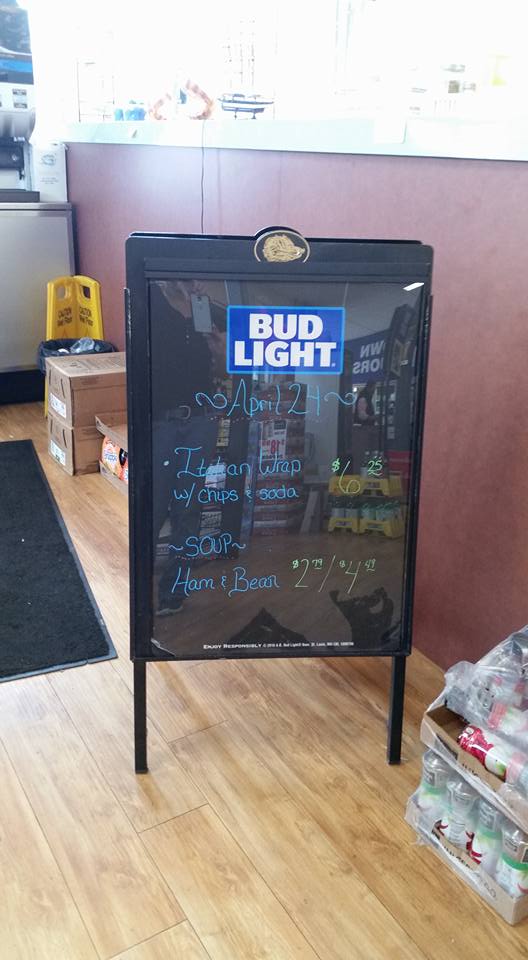 BUD
LIGHT
~April 24~
Italian Wrap $6 25
w/ chips & soda
~SOUP~
Ham & Bean $2 79 / $4 49
ENJOY RESPONSIBLY
CAUTION
CAUTION